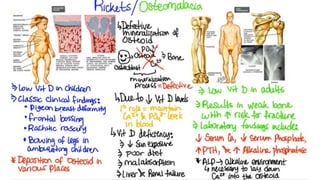 Rickets/Osteomalacia
↳ Defective
mineralization of
Osteoid
PO4
Ca2+
Osteoid
Bone
Osteoblast
mineralization
process = Defective
↳ Due to ↓ Vit D levels
↳ 1° role = maintain
Ca2+ & PO4 levels
in blood
↳ Vit D deficiency:
⇒ ↓ Sun exposure
⇒ Poor diet
⇒ malabsorption
⇒ Liver & Renal failure
⇒ Low Vit D in children
⇒ Classic clinical findings:
• Pigeon breast deformity
• frontal bossing
• Rachitic rosary
• Bowing of legs in
ambulating children
* Deposition of Osteoid in
various places
⇒ Low Vit D in adults
⇒ Results in weak bone
with ↑ risk for fracture
⇒ Laboratory findings includes
↓ Serum Ca, ↓ Serum Phosphate,
↑ PTH, ↑ Alkaline phosphatase
* ALP → alkaline environment
↳ necessary to lay down
Ca2+ into the osteoid